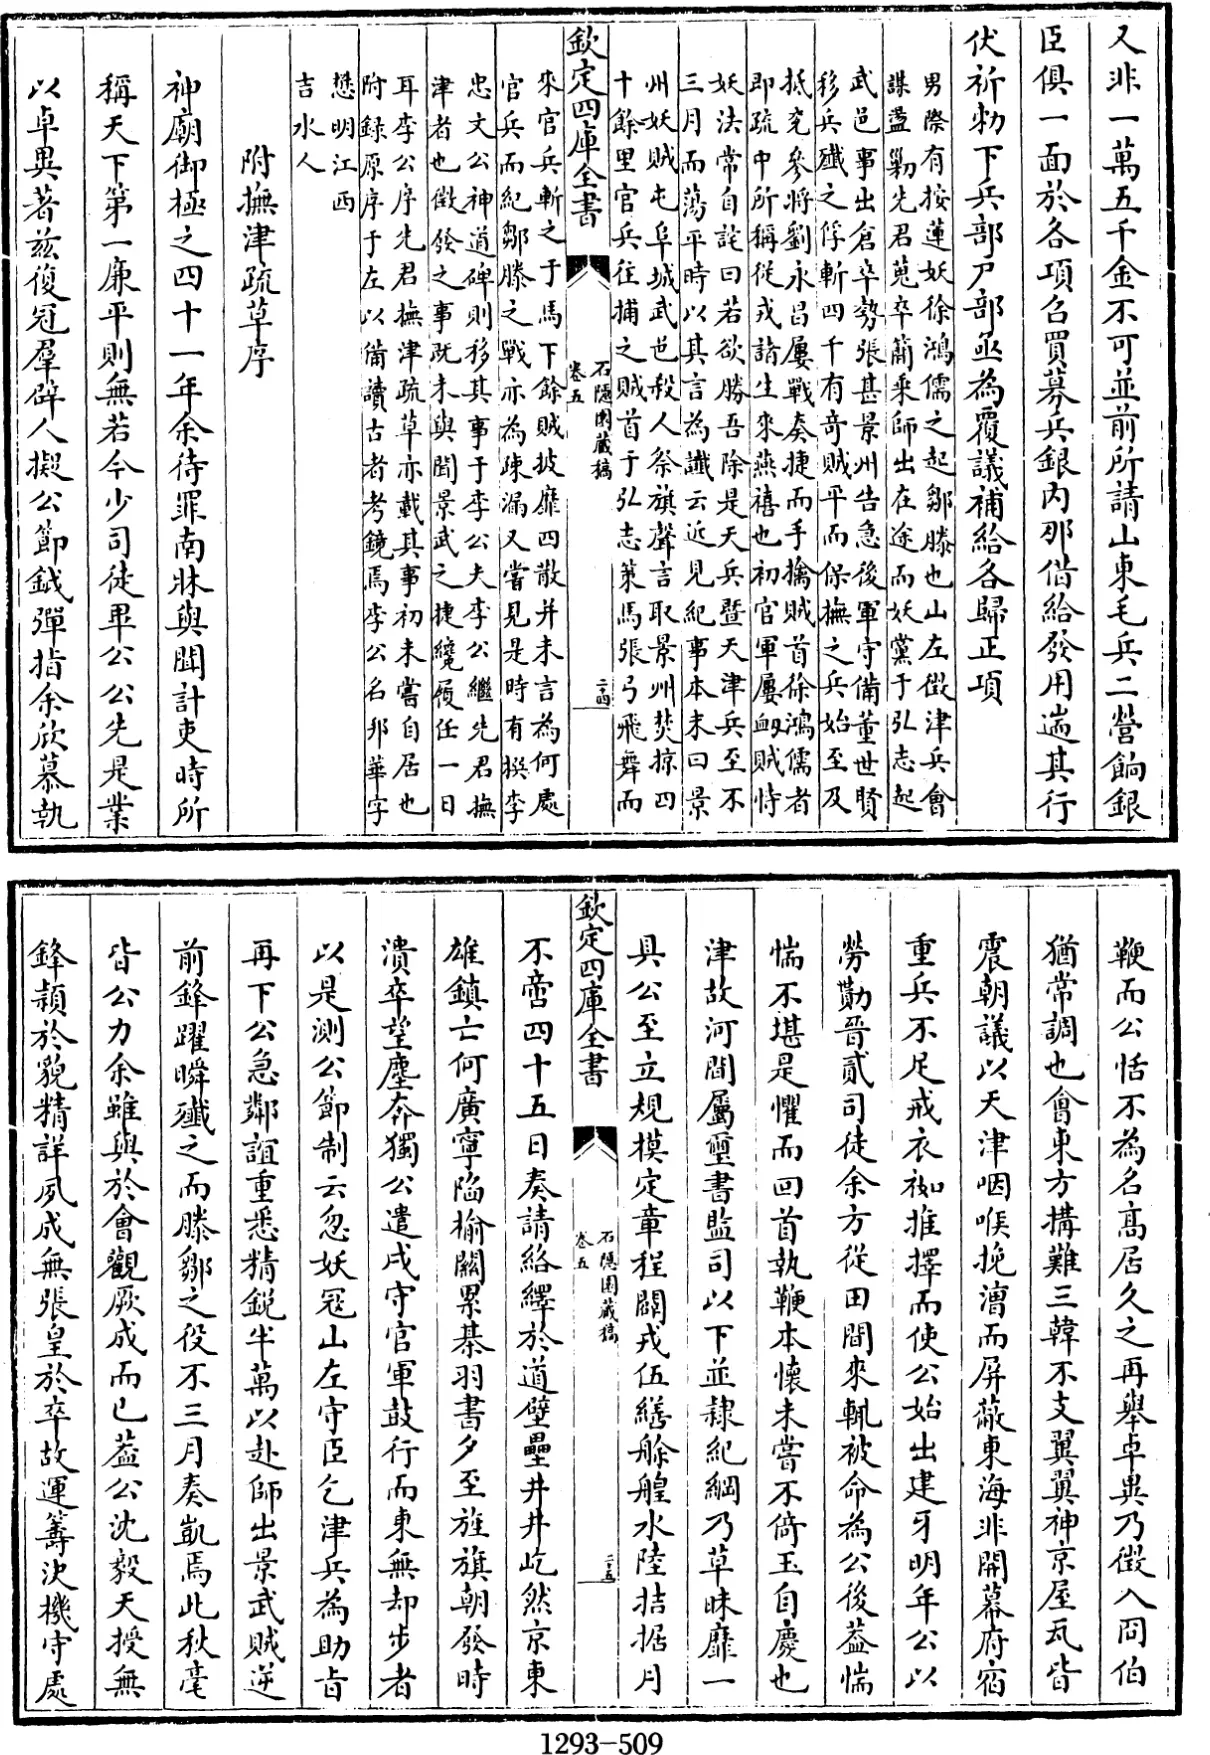 又非一萬五千金不可並前所請山東毛兵二營餉銀
臣俱一面於各項召買募兵銀内那借給發用遄其行
伏祈勅下兵部户部亟為覆議補給各歸正項
男際有按蓮妖徐鴻儒之起鄒滕也山左徴津兵會
謀盡勦先君蒐卒簡乘師出在途而妖黨于弘志起
武邑事出倉卒勢張甚景州告急後軍守備董世賢
移兵殱之俘斬四千有竒賊平而保撫之兵始至及
抵兖參將劉永昌屢戰奏捷而手擒賊首徐鴻儒者
即疏中所稱從戎諸生來燕禧也初官軍屢衂賊恃
妖法常自詫曰若欲勝吾除是天兵暨天津兵至不
三月而蕩平時以其言為讖云近見紀事本末曰景
州妖賊屯阜城武邑殺人祭旗聲言取景州焚掠四
十餘里官兵往捕之賊首于弘志策馬張弓飛舞而
欽定四庫全書
石隱園藏稿
卷五
二十四
來官兵斬之于馬下餘賊披靡四散并未言為何處
官兵而紀鄒滕之戰亦為疎漏又嘗見是時有撰李
忠文公神道碑則移其事于李公夫李公繼先君撫
津者也徴發之事既未與聞景武之捷纔履任一日
耳李公序先君撫津疏草亦載其事初未嘗自居也
附録原序于左以備讀古者考鏡焉李公名邦華字
懋明江西
吉水人
附撫津疏草序
神廟御極之四十一年余待罪南牀與聞計吏時所
稱天下第一亷平則無若今少司徒畢公公先是業
以卓異著兹復冠羣辟人擬公節鉞彈指余欣慕執
鞭而公恬不為名髙居久之再舉卓異乃徴入冏伯
猶常調也會東方搆難三韓不支翼翼神京屋瓦皆
震朝議以天津咽喉挽漕而屏蔽東海非開幕府宿
重兵不足戒衣袽推擇而使公始出建牙明年公以
勞勩晉貳司徒余方從田間來輒被命為公後葢惴
惴不堪是懼而回首執鞭本懷未嘗不倚玉自慶也
津故河間屬璽書監司以下並隷紀綱乃草昧靡一
具公至立規模定章程闢戎伍繕艅艎水陸拮据月
欽定四庫全書
石隱園藏稿
卷五
二十五
不啻四十五日奏請絡繹於道壁壘井井屹然京東
雄鎮亡何廣寧陷榆闗累棊羽書夕至旌旗朝發時
潰卒望塵奔獨公遣戍守官軍鼓行而東無却步者
以是測公節制云忽妖冦山左守臣乞津兵為助㫖
再下公急鄰誼重悉精鋭半萬以赴師出景武賊逆
前鋒躍瞬殱之而滕鄒之役不三月奏凱焉此秋毫
皆公力余雖與於㑹觀厥成而已葢公沈毅天授無
鋒頴於貌精詳夙成無張皇於卒故運籌決機守處
1293-509